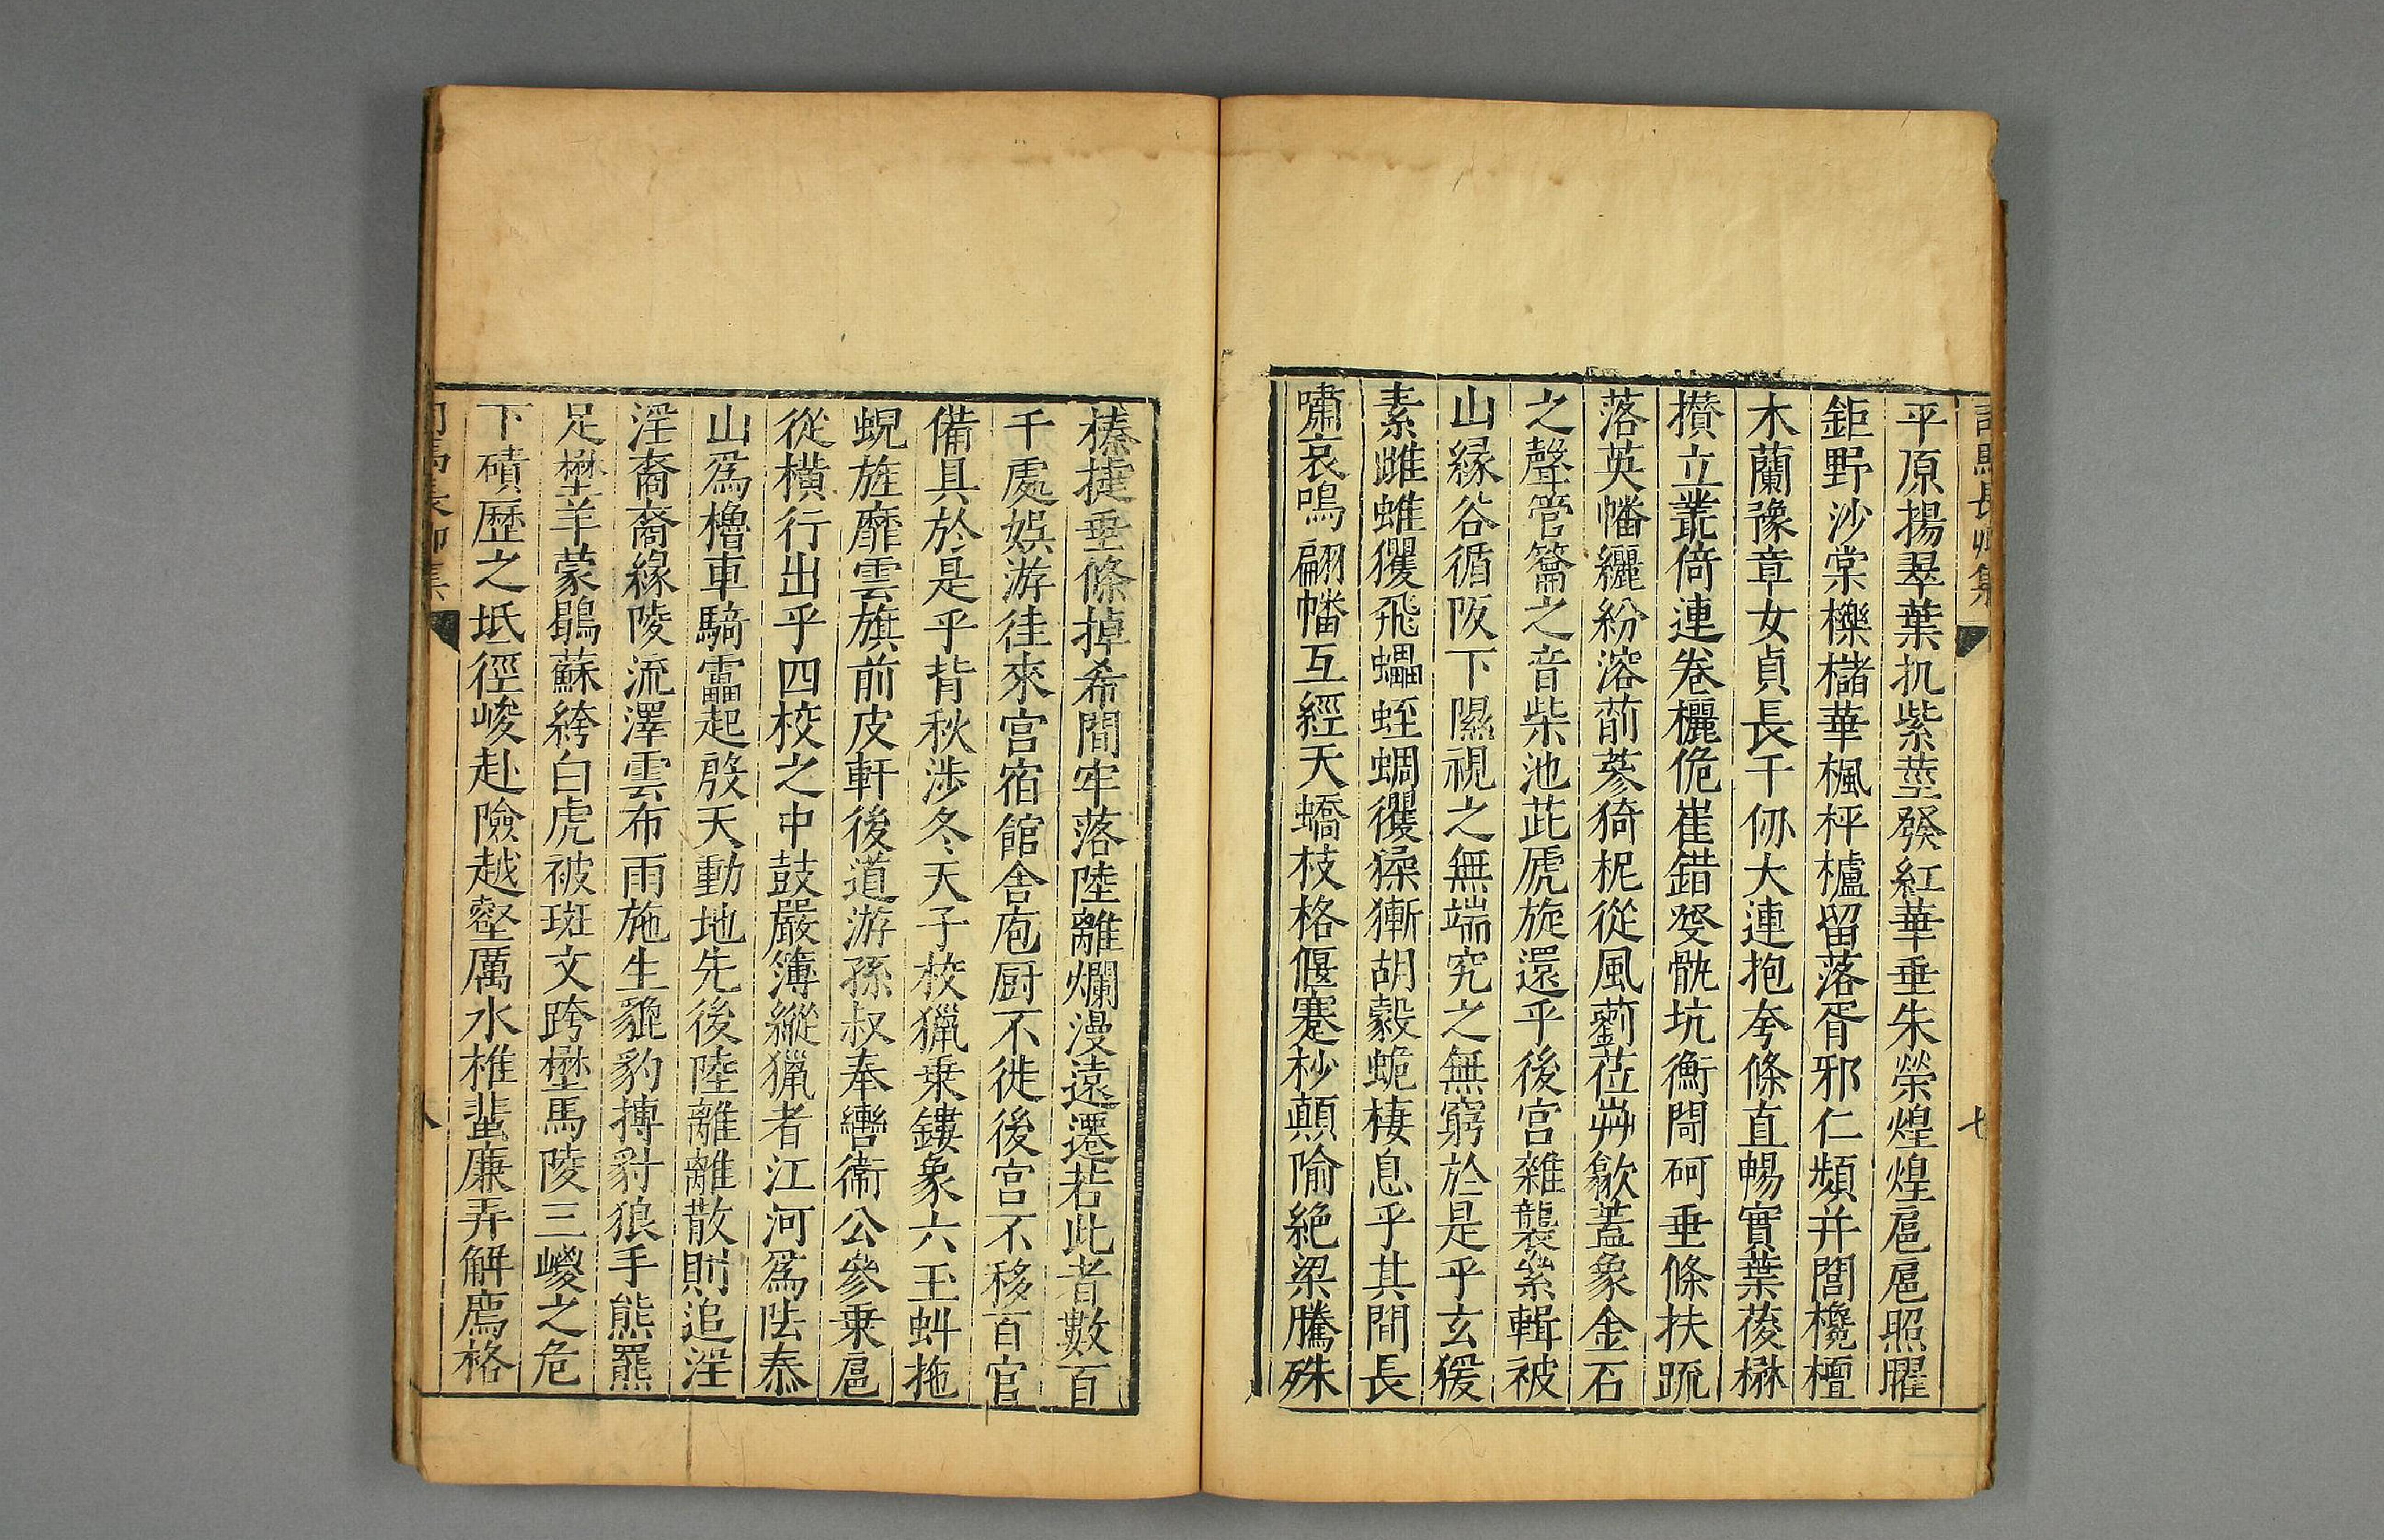 平原揚翠葉扤紫莖發紅華垂朱榮煌煌扈扈照曜
鉅野沙棠櫟櫧華楓枰櫨留落胥邪仁頻并閭欃檀
木蘭豫章女貞長千仞大連抱夸條直暢實葉葰楙
攢立叢倚連卷欐佹崔錯癹骫坑衡閜砢垂條扶疏
落英幡纚紛溶萷蔘猗柅從風藰莅芔歙蓋象金石
之聲管籥之音柴池茈虒旋還乎後宮雜襲絫輯被
山緣谷循阪下隰視之無端究之無窮於是乎玄猨
素雌蜼玃飛蠝蛭蜩玃猱獑胡縠蛫棲息乎其間長
嘯哀鳴翩幡互經夭蟜枝格偃蹇杪顛隃絕梁騰殊
榛捷垂條掉希間牢落陸離爛漫遠遷若此者數百
千處娛游往來宮宿館舍庖厨不徙後宮不移百官
備具於是乎背秋涉冬天子校獵乗鏤象六玉虯拖
蜺旌靡雲旗前皮軒後道游孫叔奉轡衛公參乗扈
從橫行出乎四校之中鼓嚴簿縱獵者江河爲阹泰
山爲櫓車騎靁起殷天動地先後陸離離散別追淫
淫裔裔緣陵流澤雲布雨施生貔豹搏豺狼手熊羆
足壄羊蒙鶡蘇絝白虎被斑文跨壄馬陵三嵏之危
下磧歷之坻徑峻赴險越壑厲水椎蜚廉弄解廌格
八